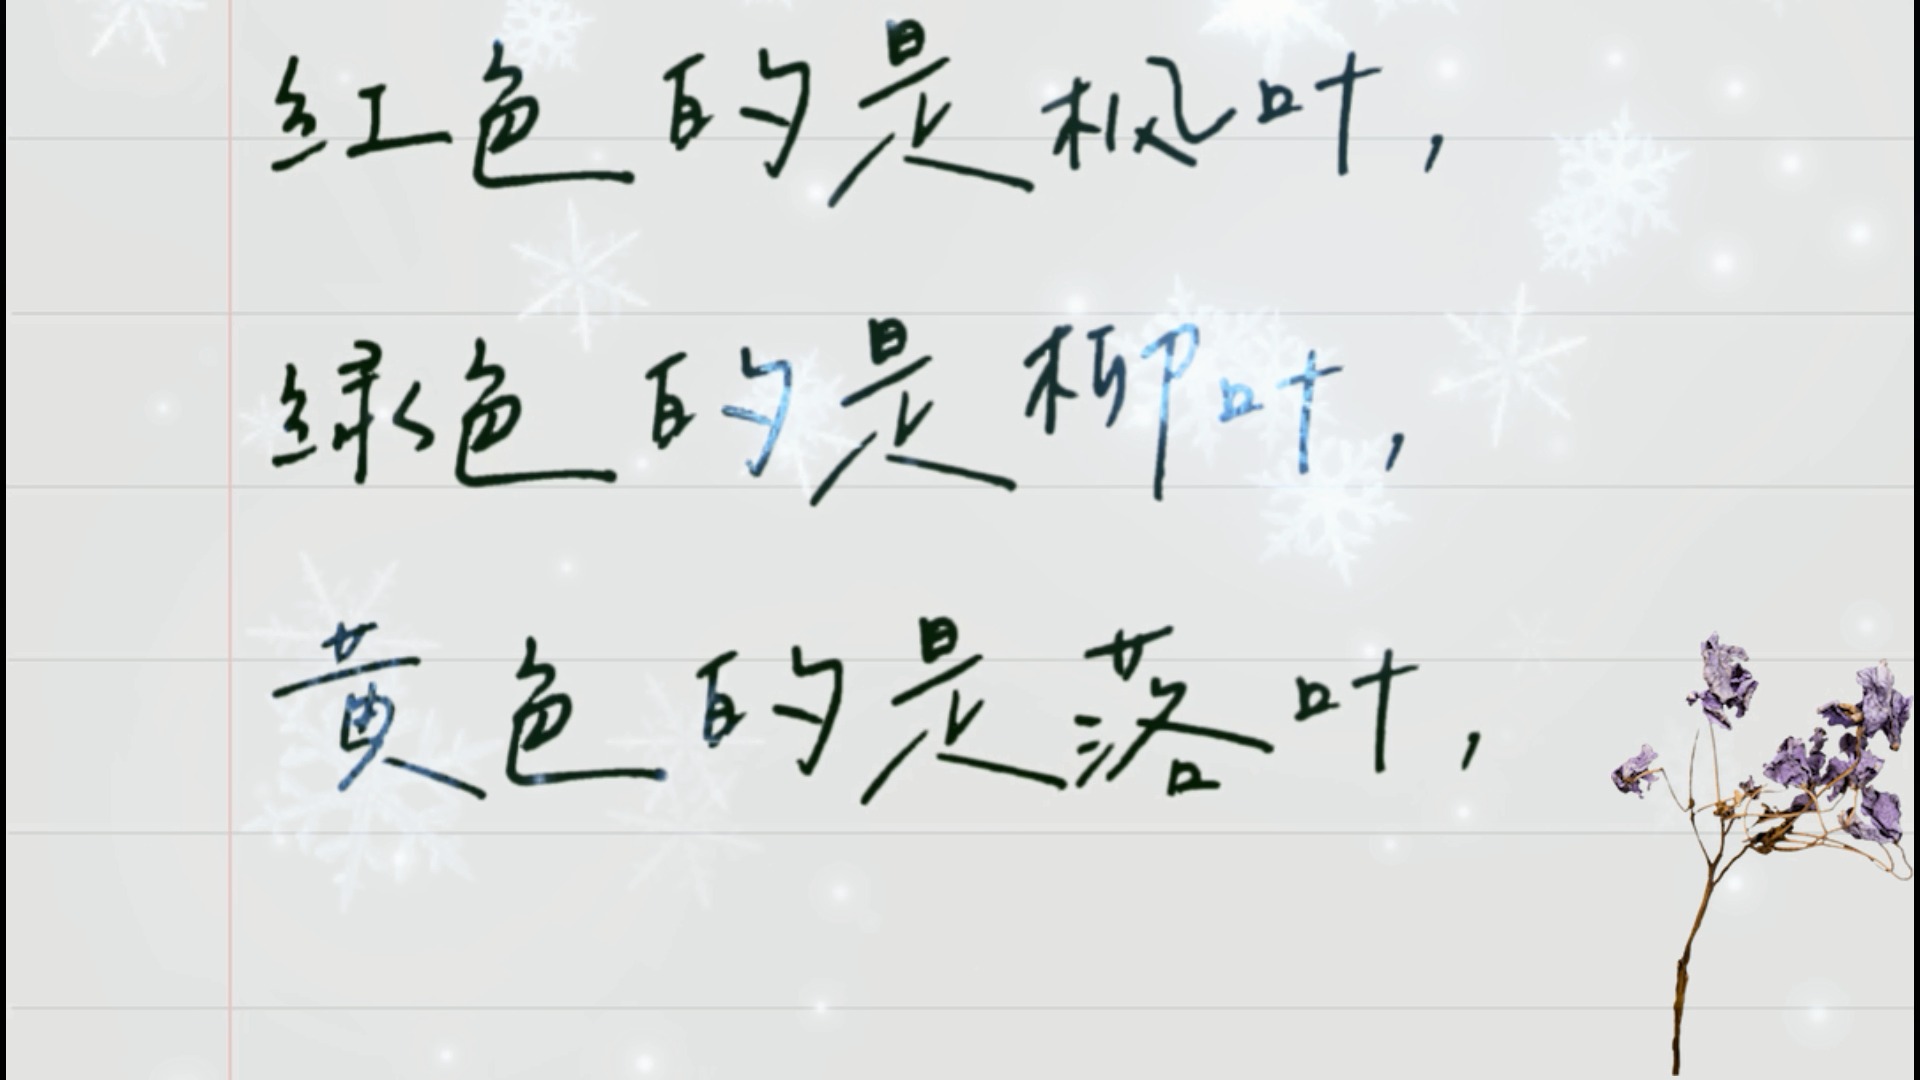 红色的是枫叶，
绿色的是柳叶，
黄色的是落叶，